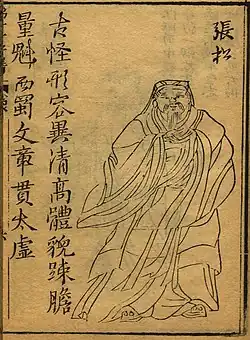 張松
古怪形容異清高體貌疎膽
量魁西蜀文章貫太虛